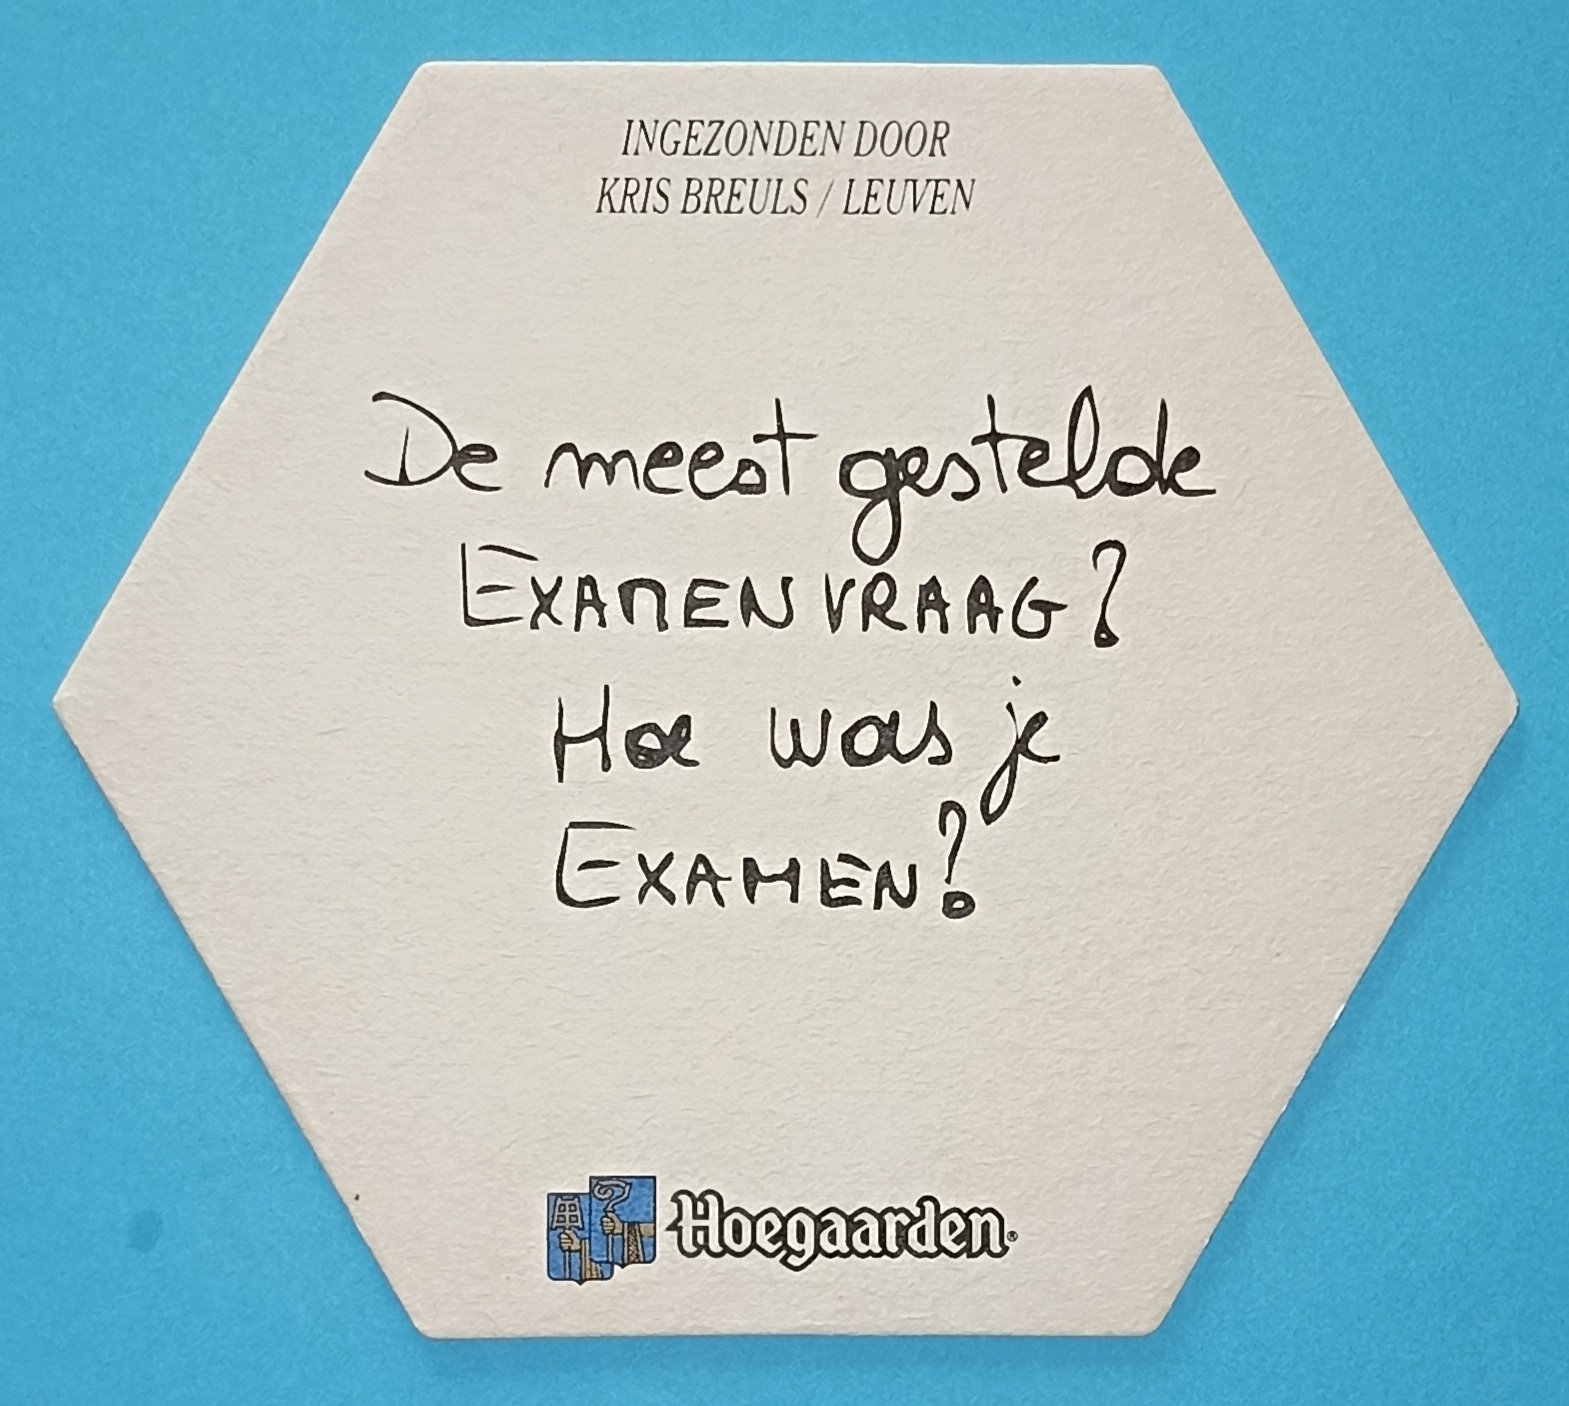 INGEZONDEN DOOR
KRIS BREULS / LEUVEN
De meest gestelde
EXAMENVRAAG?
Hoe was je
EXAMEN?
Hoegaarden®